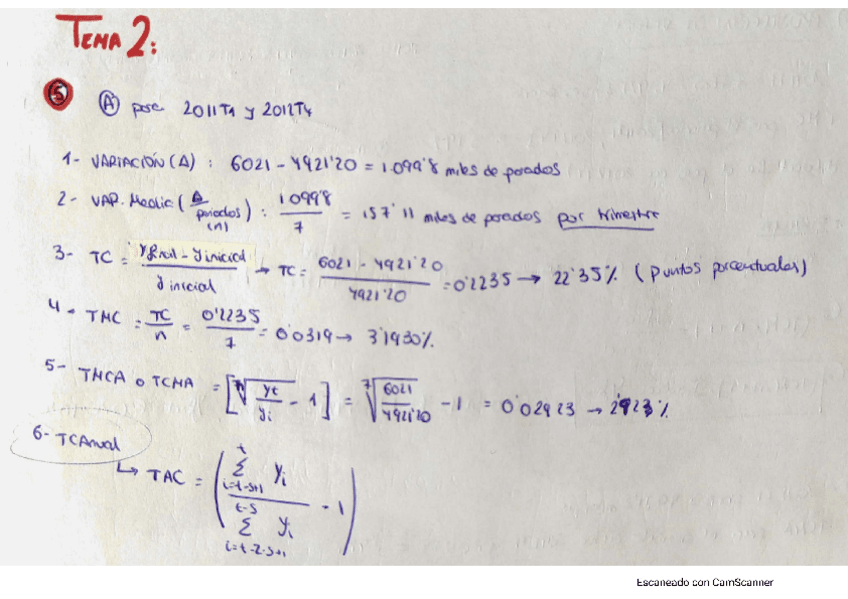 TEMA 2:
5 A para 2011T1 y 2012T4
1- VARIACIÓN (A) : 6021 - 4921'20 = 1.099'8 miles de parados
2- VAR. Media (Δ / periodos (n)) : 1099'8 / 7 = 157'11 miles de parados por trimestre
3- TC = y final - y inicial / y inicial → TC = 6021 - 4921'20 / 4921'20 = 0'2235 → 22'35% (puntos porcentuales)
4- TMC = TC / n = 0'2235 / 7 = 0'0319 → 3'1930%
5- TMCA o TCMA = [ⁿ√(yt / yi) - 1] = ⁷√(6021 / 4921'20) - 1 = 0'02923 → 2'923%
6- TCAnual
↳ TAC = (t Σ i=t-s+1 yi / t-s Σ i=t-2·s+1 yi - 1)
Escaneado con CamScanner